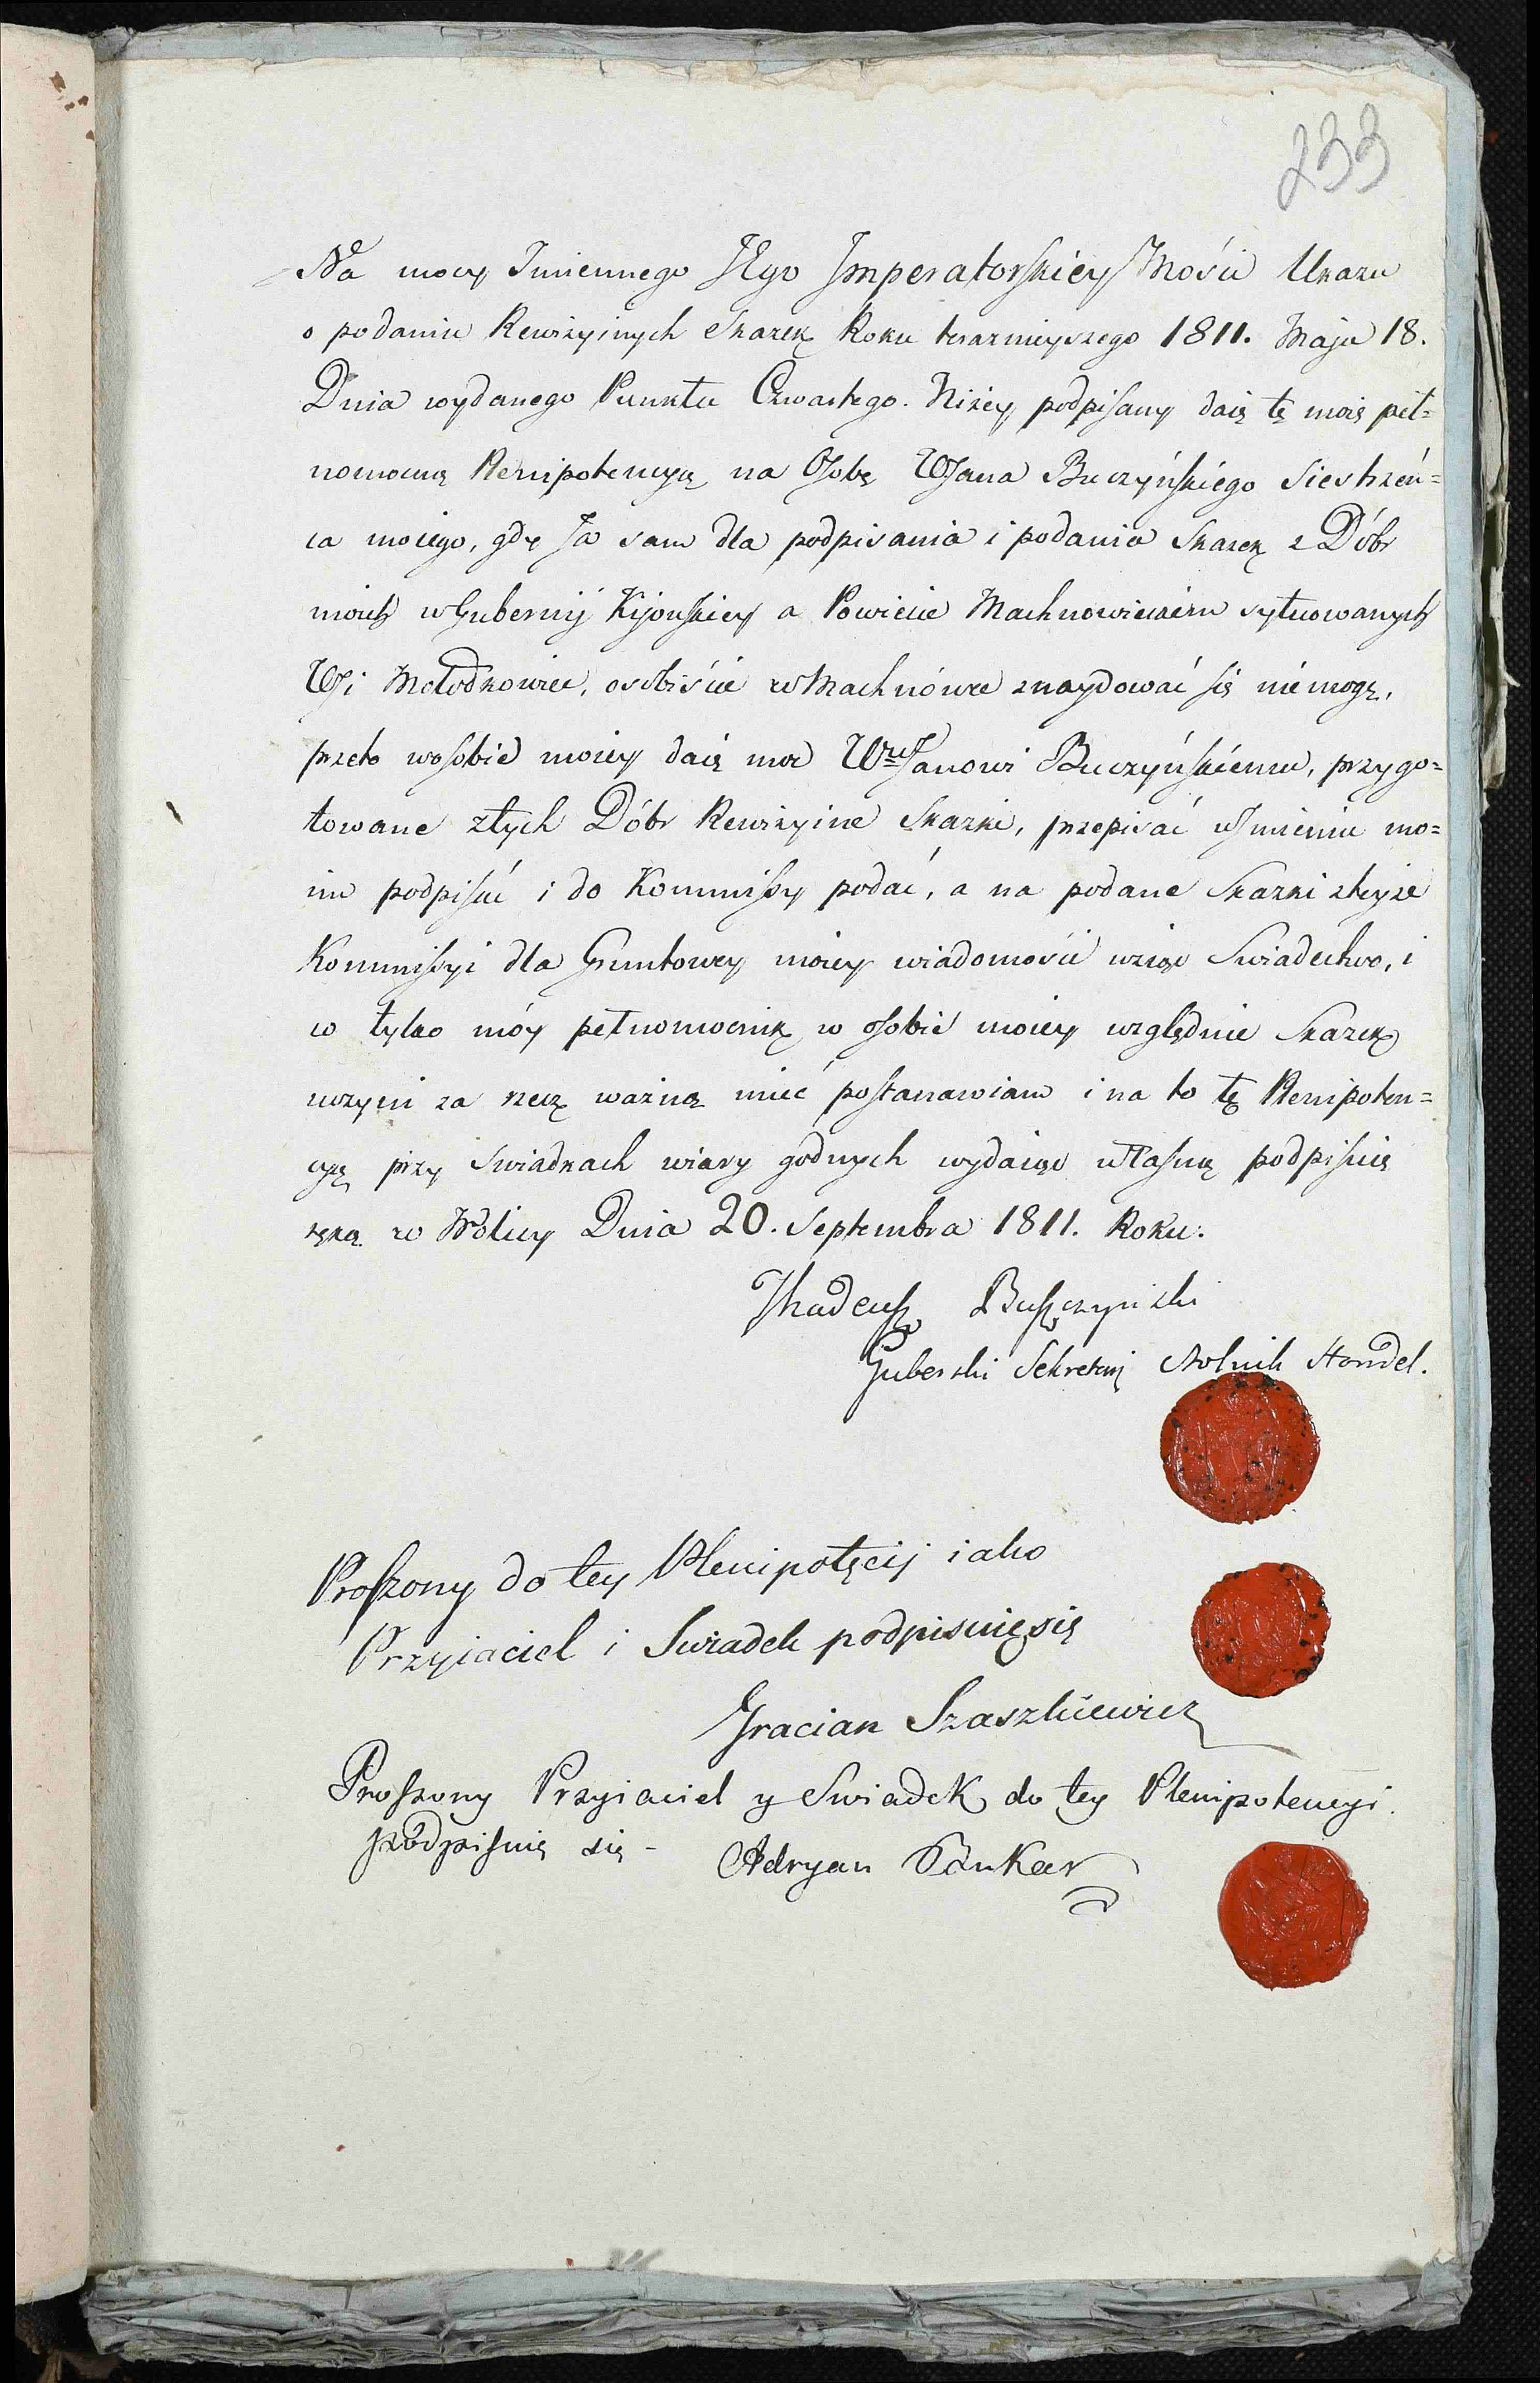 233
Na mocy Imiennego JEgo Jmperatorskiéy Mości Ukazu
o podaniu Rewizyinych Skazek Roku teraznieyszego 1811. Maja 18.
Dnia wydanego Punktu Czwartego. Niżéy podpisany daię tę moię peł=
nomocną Plenipotencyą na Osobę WJana Buczyńskiégo Siestrzeń=
ca moiego, gdy Ja sam dla podpisania i podania Skazek z Dóbr
moich w Gubernij Kijowskiey a Powiecie Machnowieckim sytuowanych
Wsi Mołodkowiec, osobiście w Machnówce znaydować się nie mogę,
przeto w osobie moiey daię moc Wmu Janowi Buczyńskiému, przygo=
towane z tych Dóbr Rewizyine Skazki, przepisać w Jmieniu mo=
im podpisać i do Kommissy podać, a na podane Skazki z teyże
Kommissyi dla Gruntowey moiey wiadomości wziąć Swiadectwo, i
co tylko móy pełnomocnik w osobie moiey względnie Skazek
uczyni za rzecz ważną mieć postanawiam i na to tę Plenipoten=
cyę przy Swiadkach wiary godnych wydaiąc własną podpisuię
ręką w Wolicy Dnia 20. Septembra 1811. Roku.
Thadeusz Buszczynski
Guberski Sekretarj Stolnik
Proszony do tey Plenipotęcij iako
Przyiaciel i Swiadek podpisuię się
Gracian Szaszkiewicz
Proszony Przyiaciel y Swiadek do tey Plenipotencyi
podpisuię się - Adryan